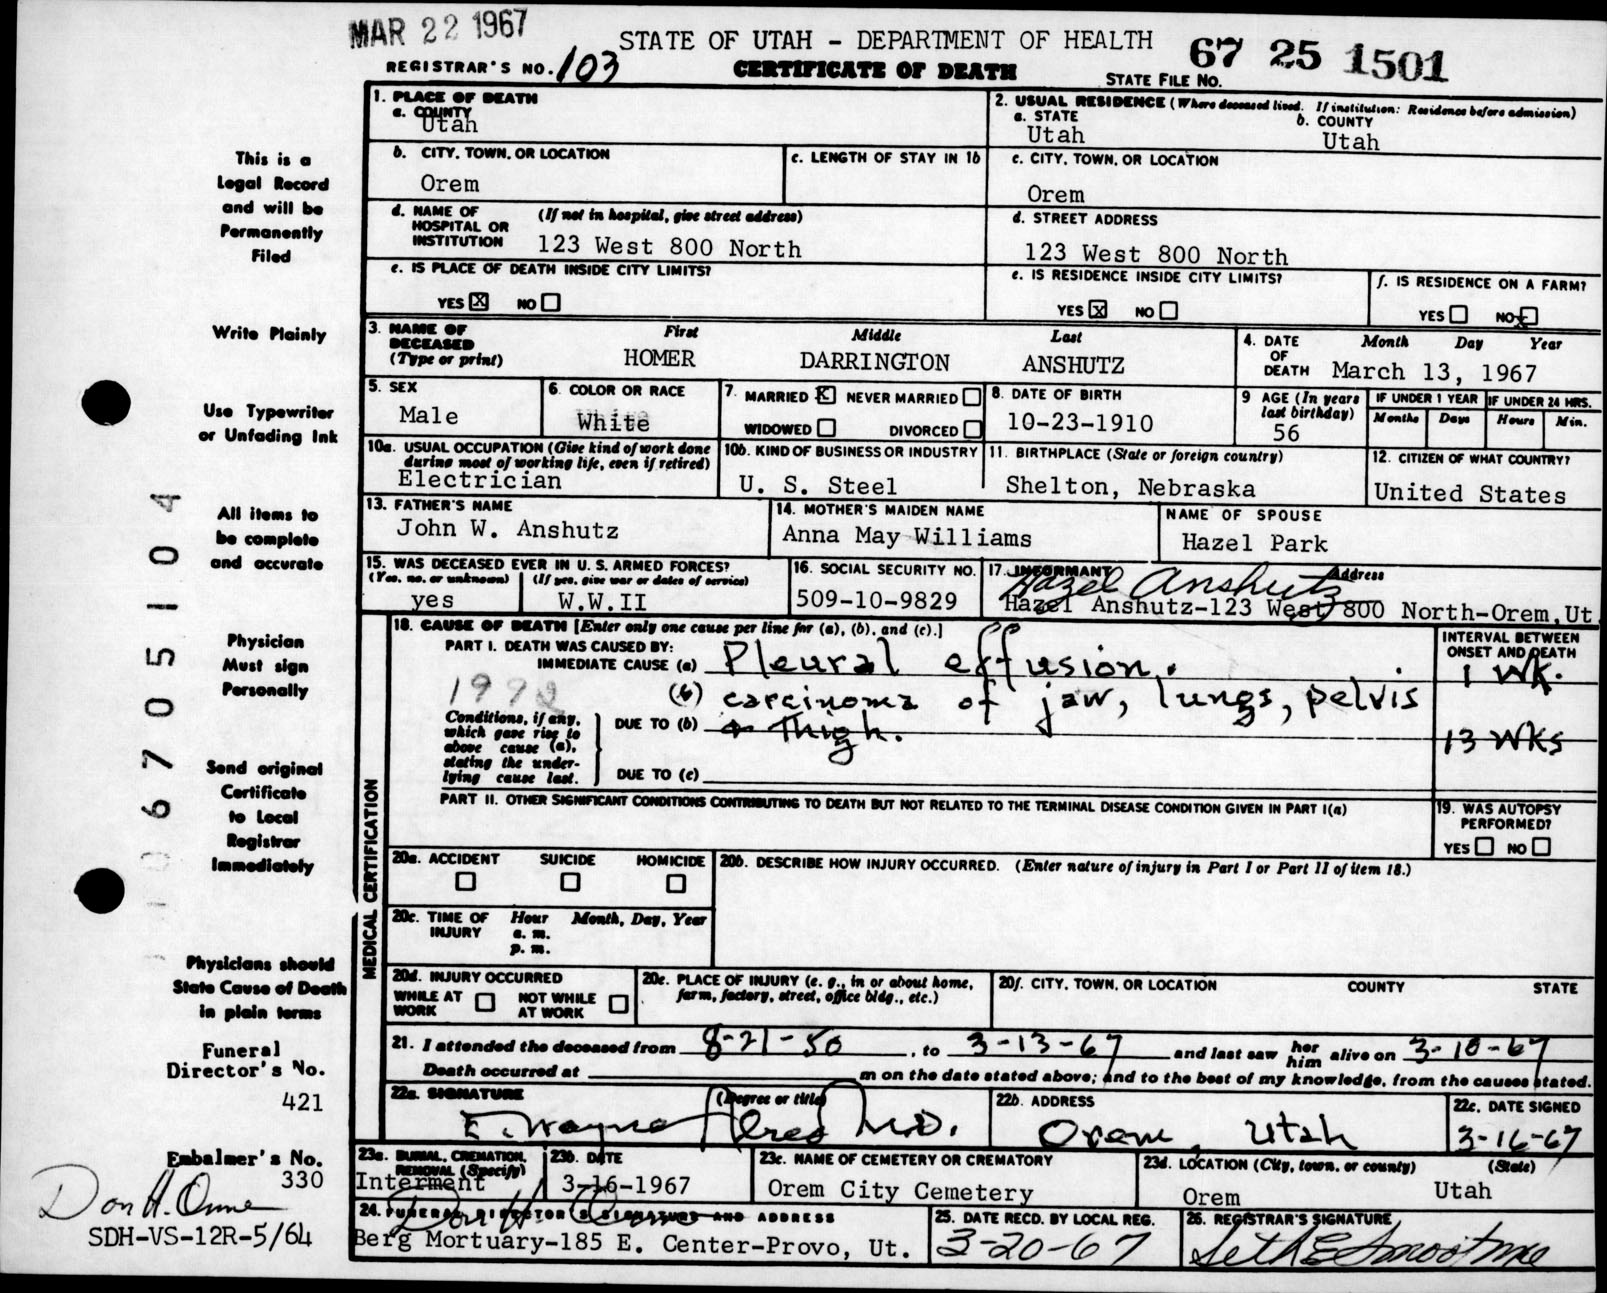 MAR 22 1967
STATE OF UTAH - DEPARTMENT OF HEALTH
67 25 1501
REGISTRAR'S NO. 103
CERTIFICATE OF DEATH
STATE FILE NO.
This is a
Legal Record
and will be
Permanently
Filed
Write Plainly
Use Typewriter
or Unfading Ink
All items to
be complete
and accurate
Physician
Must sign
Personally
Send original
Certificate
to Local
Registrar
Immediately
Physicians should
State Cause of Death
in plain terms
Funeral
Director's No.
421
Embalmer's No.
330
Don H.
SDH-VS-12R-5/64
06705104
1. PLACE OF DEATH
a. COUNTY
Utah
2. USUAL RESIDENCE (Where deceased lived. If institution: Residence before admission)
a. STATE b. COUNTY
Utah Utah
b. CITY, TOWN, OR LOCATION
Orem
c. LENGTH OF STAY IN 1b
c. CITY, TOWN, OR LOCATION
Orem
d. NAME OF (If not in hospital, give street address)
HOSPITAL OR
INSTITUTION 123 West 800 North
d. STREET ADDRESS
123 West 800 North
e. IS PLACE OF DEATH INSIDE CITY LIMITS?
YES X NO
e. IS RESIDENCE INSIDE CITY LIMITS?
YES X NO
f. IS RESIDENCE ON A FARM?
YES NO X
3. NAME OF First Middle Last
DECEASED
(Type or print) HOMER DARRINGTON ANSHUTZ
4. DATE Month Day Year
OF
DEATH March 13, 1967
5. SEX
Male
6. COLOR OR RACE
White
7. MARRIED X NEVER MARRIED
WIDOWED DIVORCED
8. DATE OF BIRTH
10-23-1910
9 AGE (In years
last birthday)
56
IF UNDER 1 YEAR IF UNDER 24 HRS.
Months Days Hours Min.
10a. USUAL OCCUPATION (Give kind of work done
during most of working life, even if retired)
Electrician
10b. KIND OF BUSINESS OR INDUSTRY
U. S. Steel
11. BIRTHPLACE (State or foreign country)
Shelton, Nebraska
12. CITIZEN OF WHAT COUNTRY?
United States
13. FATHER'S NAME
John W. Anshutz
14. MOTHER'S MAIDEN NAME
Anna May Williams
NAME OF SPOUSE
Hazel Park
15. WAS DECEASED EVER IN U. S. ARMED FORCES?
(Yes, no, or unknown) (If yes, give war or dates of service)
yes W.W.II
16. SOCIAL SECURITY NO.
509-10-9829
17. INFORMANT Address
Hazel Anshutz
Hazel Anshutz-123 West 800 North-Orem, Ut
18. CAUSE OF DEATH [Enter only one cause per line for (a), (b), and (c).]
INTERVAL BETWEEN
ONSET AND DEATH
PART I. DEATH WAS CAUSED BY:
IMMEDIATE CAUSE (a) Pleural effusion. 1 Wk.
(b) carcinoma of jaw, lungs, pelvis
Conditions, if any,
which gave rise to
above cause (a),
stating the under-
lying cause last.
DUE TO (b) & Thigh. 13 Wks
DUE TO (c)
PART II. OTHER SIGNIFICANT CONDITIONS CONTRIBUTING TO DEATH BUT NOT RELATED TO THE TERMINAL DISEASE CONDITION GIVEN IN PART I(a)
19. WAS AUTOPSY
PERFORMED?
YES NO
MEDICAL CERTIFICATION
20a. ACCIDENT SUICIDE HOMICIDE
20b. DESCRIBE HOW INJURY OCCURRED. (Enter nature of injury in Part I or Part II of item 18.)
20c. TIME OF Hour Month, Day, Year
INJURY a. m.
p. m.
20d. INJURY OCCURRED
WHILE AT NOT WHILE
WORK AT WORK
20e. PLACE OF INJURY (e. g., in or about home,
farm, factory, street, office bldg., etc.)
20f. CITY, TOWN, OR LOCATION COUNTY STATE
21. I attended the deceased from 8-21-50, to 3-13-67 and last saw her him alive on 3-10-67
Death occurred at m on the date stated above; and to the best of my knowledge, from the causes stated.
22a. SIGNATURE (Degree or title)
E. Wayne M.D.
22b. ADDRESS
Orem, Utah
22c. DATE SIGNED
3-16-67
23a. BURIAL, CREMATION,
REMOVAL (Specify)
Interment
23b. DATE
3-16-1967
23c. NAME OF CEMETERY OR CREMATORY
Orem City Cemetery
23d. LOCATION (City, town, or county) (State)
Orem Utah
24. FUNERAL DIRECTOR'S SIGNATURE AND ADDRESS
Don H.
Berg Mortuary-185 E. Center-Provo, Ut.
25. DATE RECD. BY LOCAL REG.
3-20-67
26. REGISTRAR'S SIGNATURE
Seth E Smoot